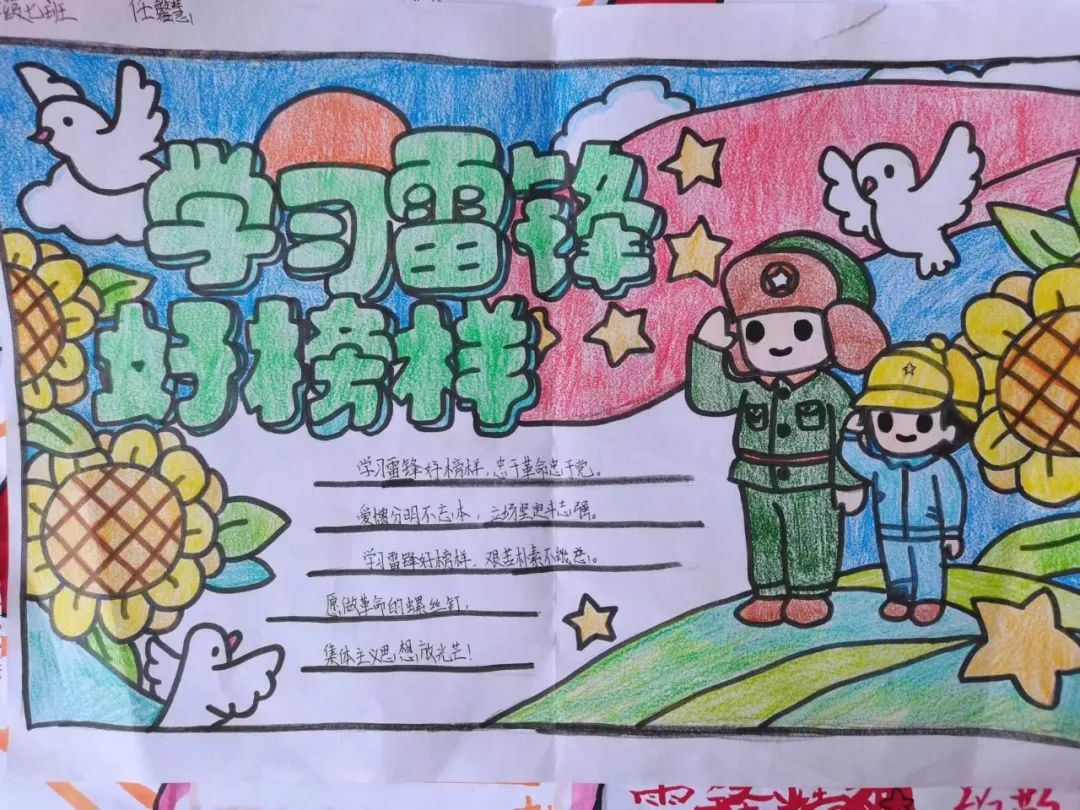 级七班
学习雷锋
好榜样
学习雷锋好榜样,忠于革命忠于党。
爱憎分明不忘本，立场坚定斗志强。
学习雷锋好榜样，艰苦朴素不能忘。
愿做革命的螺丝钉,
集体主义思想放光芒!
雷锋精神